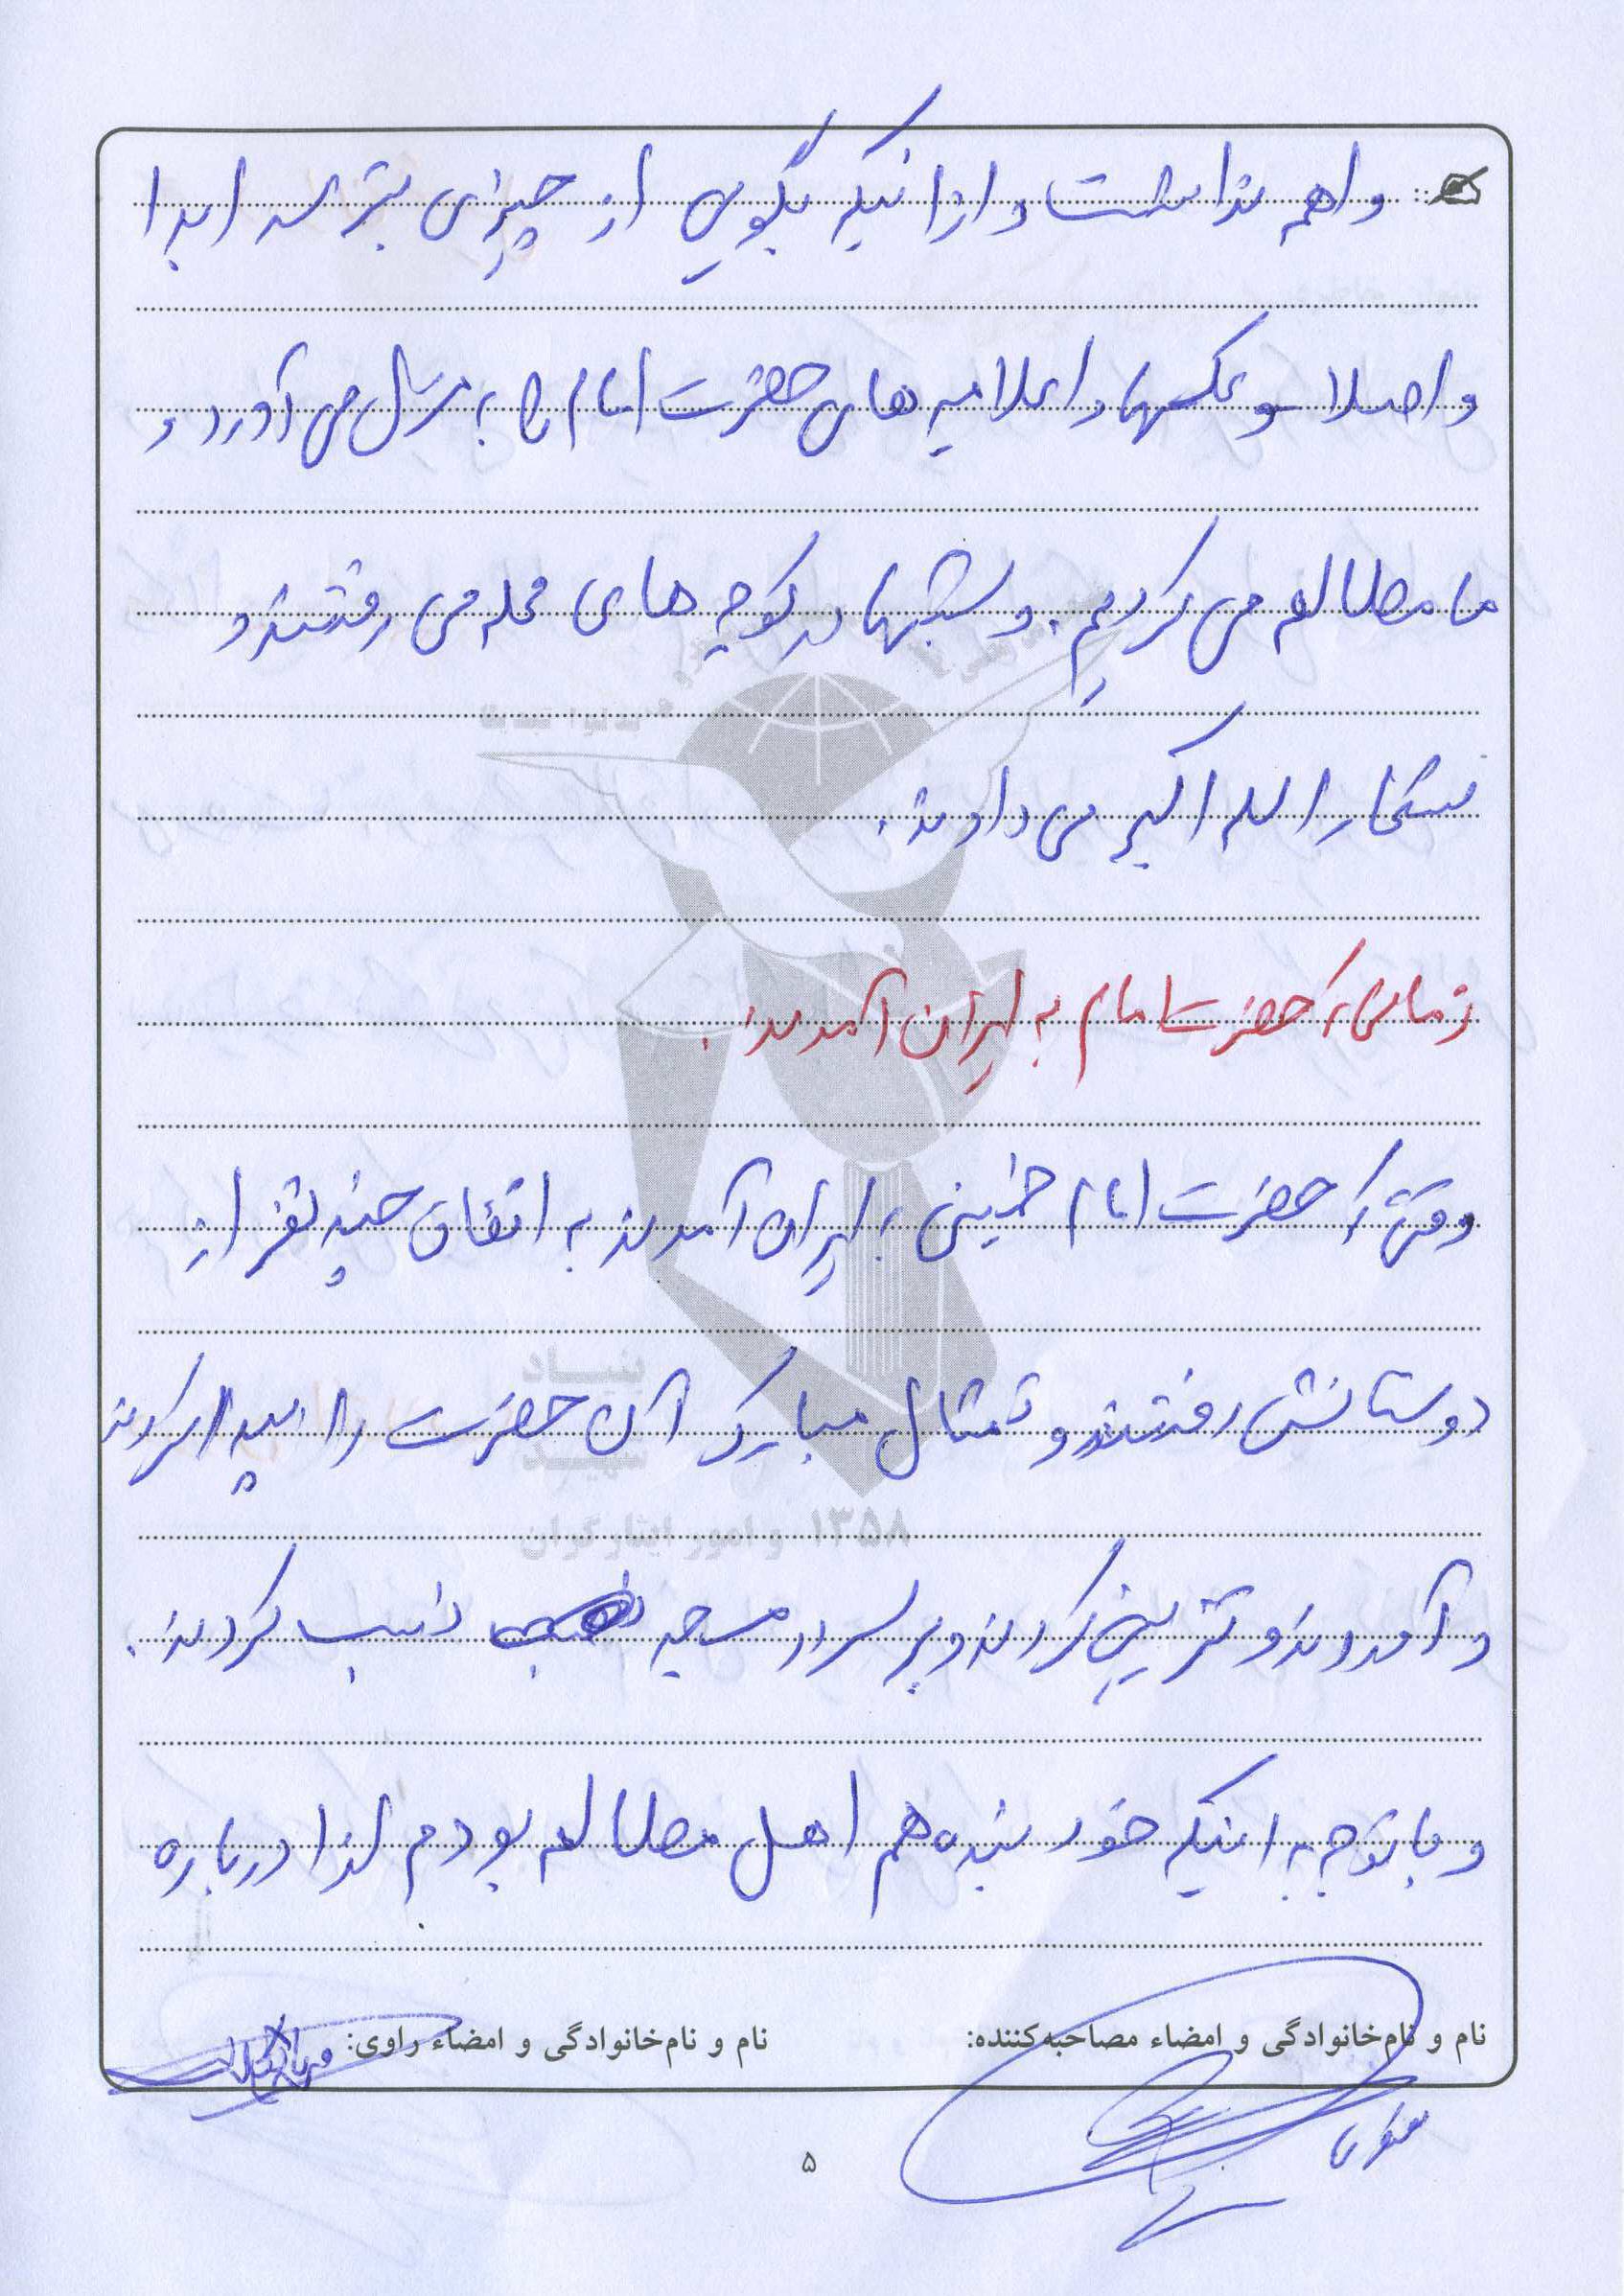 واهمه نداشت و از اینکه بگویی از چیزی بترسد ابدا
و اصلا و عکسها و اعلامیه های حضرت امام را به منزل می آورد و
ما مطالعه می کردیم. و شبها در کوچه های محله می رفتند و
شعار الله اکبر می دادند.
زمانی که حضرت امام به ایران آمدند.
وقتی که حضرت امام خمینی به ایران آمدند به اتفاق چند نفر از
دوستانش رفتند و تمثال مبارک آن حضرت را پیدا کردند
و آمدند و تزیین کردند و بر سردر مسجد نصب کردند.
و با توجه به اینکه خود بنده هم اهل مطالعه بودم لذا درباره
نام و نام‌خانوادگی و امضاء مصاحبه‌کننده:
نام و نام‌خانوادگی و امضاء راوی:
۵